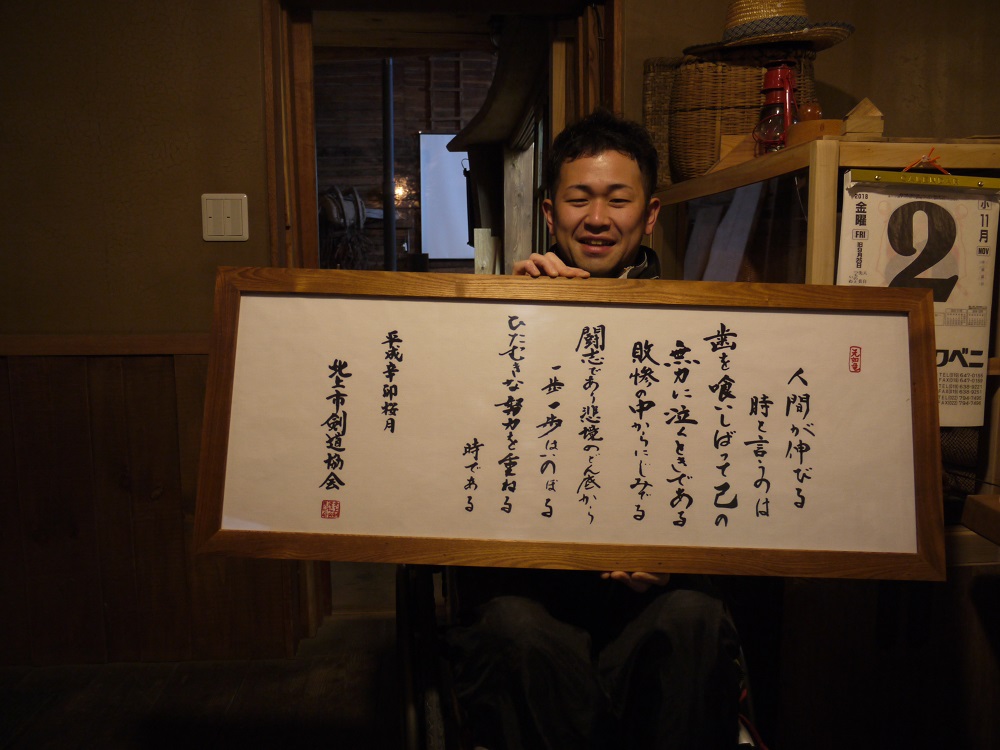 人間が伸びる
時と言うのは
歯を喰いしばって己の
無力に泣くときである
敗惨の中からにじみでる
闘志であり悲境のどん底から
一歩一歩はいのぼる
ひたむきな努力を重ねる
時である
平成辛卯桜月
北上市剣道協会
2018
金曜
FRI
2
小
11
月
NOV
クベニ